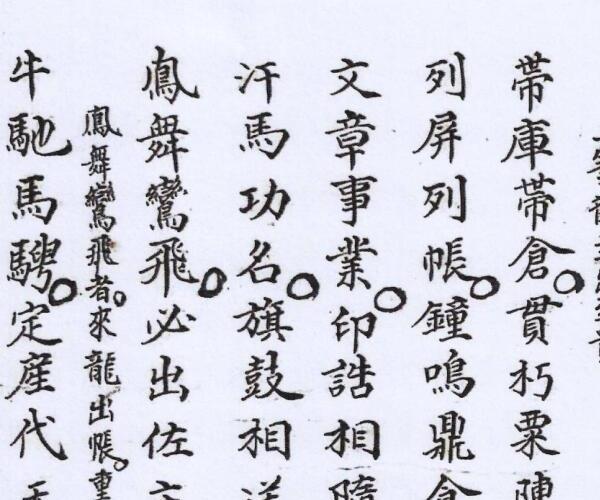 帶庫帶倉○貫朽粟陳
列屏列帳○鐘鳴鼎食
文章事業○印誥相隨
汗馬功名○旗鼓相送
鳳舞鸞飛○必出佐
鳳舞鸞飛者○來龍出帳○重
牛馳馬騁○定産代